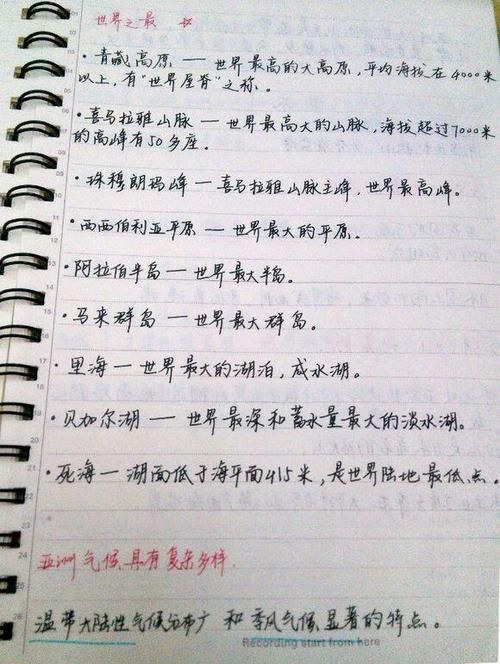 世界之最 ☆
·青藏高原 — 世界最高的大高原,平均海拔在4000米
以上,有"世界屋脊"之称。
·喜马拉雅山脉 — 世界最高大的山脉,海拔超过7000米
的高峰有50多座。
·珠穆朗玛峰 — 喜马拉雅山脉主峰,世界最高峰。
·西西伯利亚平原 — 世界最大的平原.
·阿拉伯半岛 — 世界最大半岛。
·马来群岛 — 世界最大群岛。
·里海 — 世界最大的湖泊,咸水湖。
·贝加尔湖 — 世界最深和蓄水量最大的淡水湖。
·死海 — 湖面低于海平面415米,是世界陆地最低点。
亚洲气候具有复杂多样.
温带大陆性气候分布广 和 季风气候显著的特点。
Recording start from here